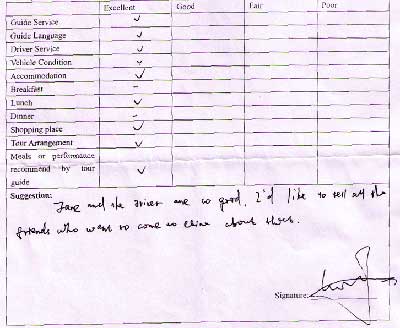 Excellent Good Fair Poor
Guide Service ✓
Guide Language ✓
Driver Service ✓
Vehicle Condition ✓
Accommodation ✓
Breakfast –
Lunch ✓
Dinner –
Shopping place ✓
Tour Arrangement ✓
Meals or performance
recommend by tour ✓
guide
Suggestion:
and the driver are so good, I'd like to tell all the
friends who want to come to China about this.
Signature: